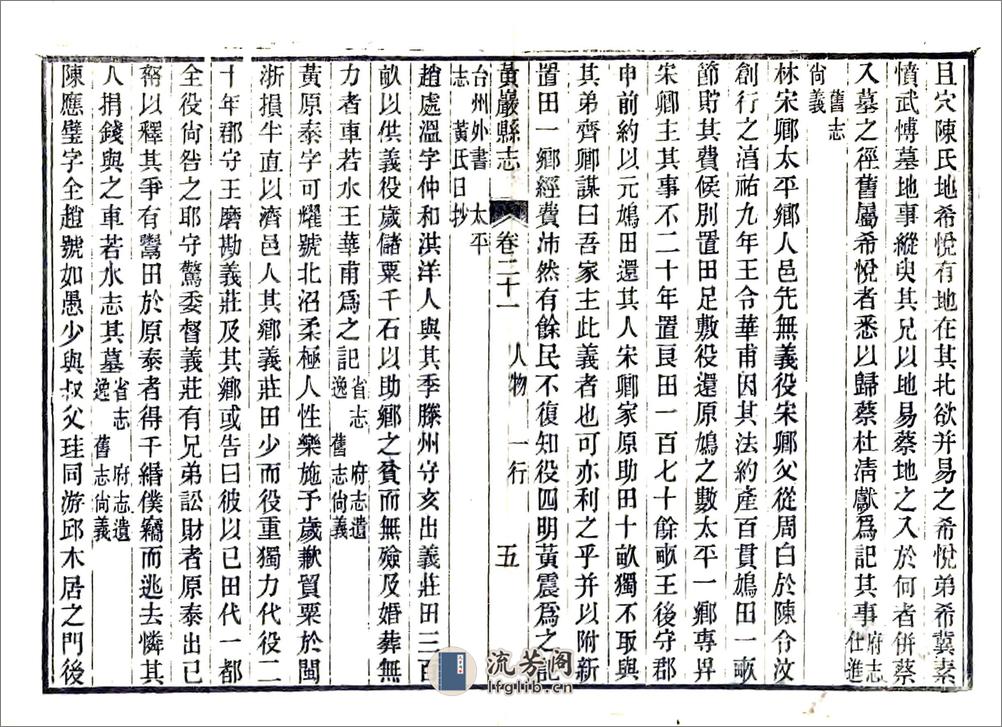 且穴陳氏地希悅有地在其北欲并易之希悅弟希冀素
憤武博墓地事縱臾其兄以地易蔡地之入於何者併蔡
入墓之徑舊屬希悅者悉以歸蔡杜清獻為記其事府志仕進
舊志尚義
林宋卿太平鄉人邑先無義役宋卿父從周白於陳令汶
創行之淯祐九年王令華甫因其法約產百貫鳩田一畝
節貯其費候別置田足敷役還原鳩之數太平一鄉專畀
宋卿主其事不二十年置良田一百七十餘畝王後守郡
申前約以元鳩田還其人宋卿家原助田十畝獨不取與
其弟齊卿謀曰吾家主此義者也可亦利之乎并以附新
置田一鄉經費沛然有餘民不復知役四明黃震為之記
黃巖縣志 卷二十一 人物 一行 五
台州外書 太平志 黃氏日抄
趙處溫字仲和淇洋人與其季滕州守亥出義莊田三百
畝以供義役歲儲粟千石以助鄉之貧而無殮及婚葬無
力者車若水王華甫為之記省志 府志遺逸 舊志尚義
黃原泰字可燿號北沼柔極人性樂施予歲歉貿粟於閩
浙損牛直以濟邑人其鄉義莊田少而役重獨力代役二
十年郡守王磨勘義莊及其鄉或告曰彼以已田代一都
全役尙咎之耶守驚委督義莊有兄弟訟財者原泰出已
帑以釋其爭有鬻田於原泰者得千緡僕竊而逃去憐其
人捐錢與之車若水志其墓省志 府志遺逸 舊志尚義
陳應璧字全趙號如愚少與叔父珪同游邱木居之門後
流芳阁
lfglib.cn